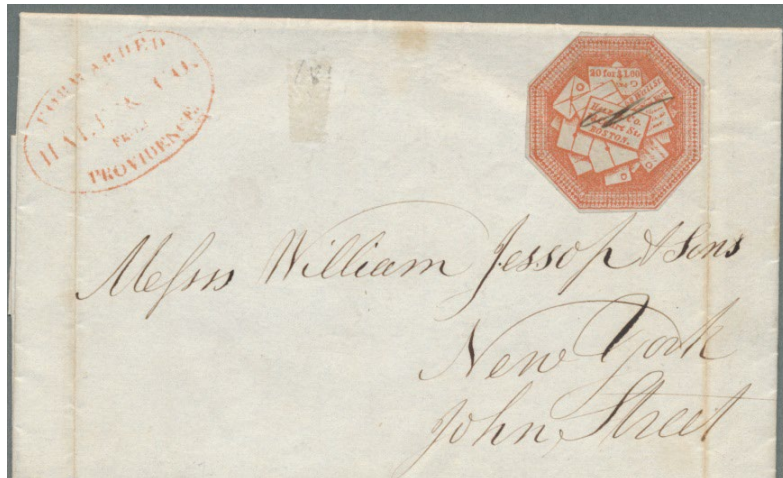 FORWARDED
HALE & CO.
FROM
PROVIDENCE.
20 for $1.00
Hale & Co.
BOSTON.
Messrs William Jessop & Sons
New York
John Street